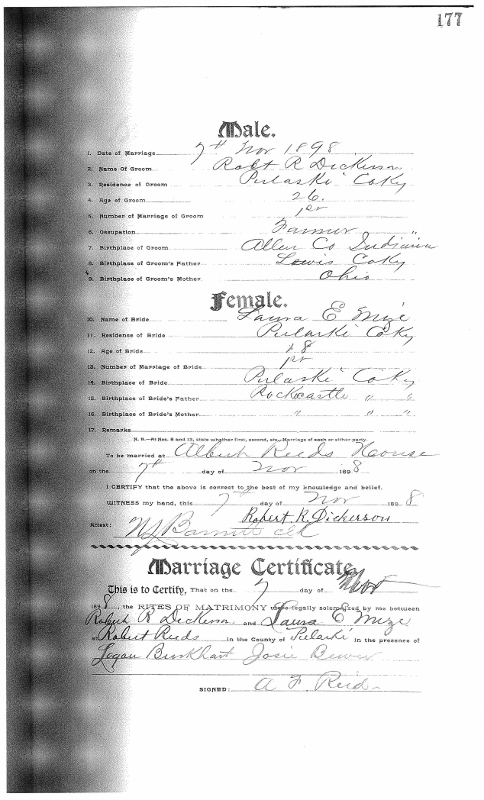 177
Male.
1. Date of Marriage 7th Nov 1898
2. Name of Groom Robt R Dickerson
3. Residence of Groom Pulaski Co Ky
4. Age of Groom 26.
5. Number of Marriage of Groom 1st
6. Occupation Farmer "
7. Birthplace of Groom Allen Co Indiana
8. Birthplace of Groom's Father Lewis Co Ky
9. Birthplace of Groom's Mother Ohio
Female.
10. Name of Bride Laura E Mize
11. Residence of Bride Pulaski Co Ky
12. Age of Bride 28
13. Number of Marriage of Bride 1st
14. Birthplace of Bride Pulaski Co Ky
15. Birthplace of Bride's Father Rockcastle " "
16. Birthplace of Bride's Mother " " "
17. Remarks
N. B.—At Nos. 5 and 13, state whether first, second, etc., Marriage of each or either party.
To be married at Albert Reids House
on the 7th day of Nov 1898
I CERTIFY that the above is correct to the best of my knowledge and belief.
WITNESS my hand, this 7th day of Nov 1898
Robert R. Dickerson
Attest: Clk
Marriage Certificate.
This is to Certify, That on the 7 day of Nov
1898, the RITES OF MATRIMONY were legally solemnized by me between
Robert R Dickerson and Laura E Mize
at Robert Reeds in the County of Pulaski in the presence of
Logan Burkhart Josie
SIGNED: A F Reid